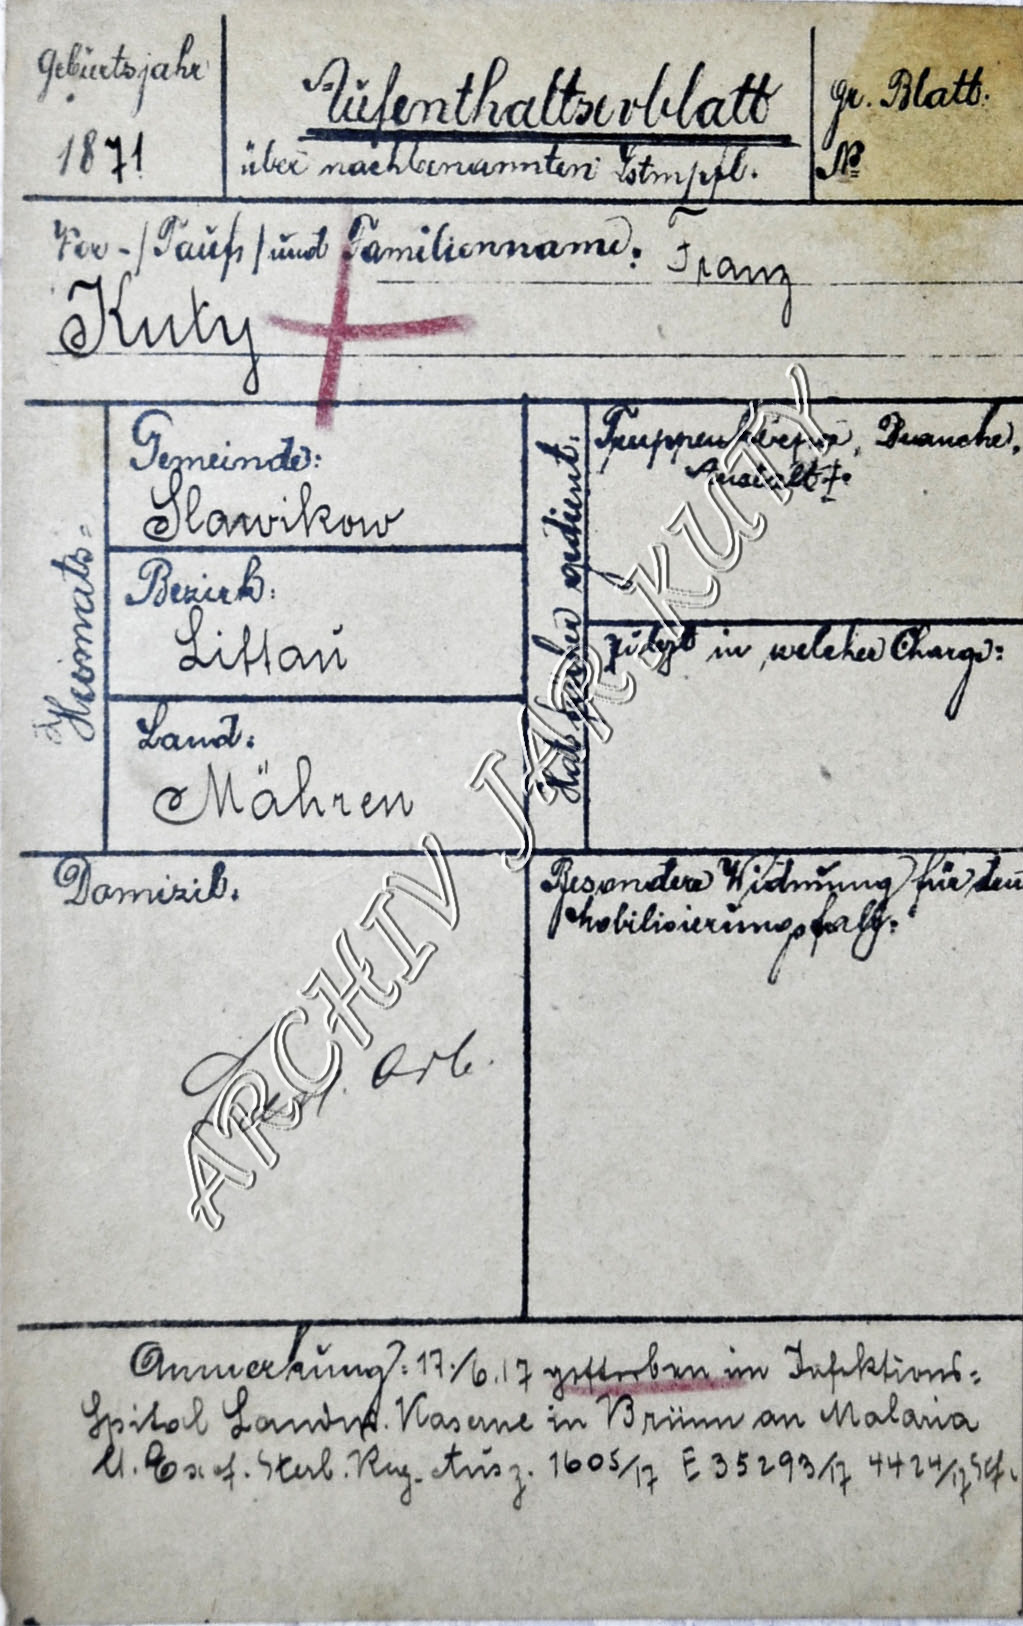 Geburtsjahr
1871
Aufenthaltsevblatt
über nachbenannten Lstmpfl.
gr. Blatt.
№
Vor-/Tauf/und Familienname: Franz
Kuty
Heimats=
Gemeinde:
Slawikow
Bezirk:
Littau
Land:
Mähren
Hat bisher gedient.
Truppenkörper, Branche,
Anstalt:
zuletzt in welcher Charge:
Domizil:
Arb.
Besondere Widmung für den
Mobilisierungsfall:
Anmerkung: 17./6.17 gestorben im Infektions=
Spital Landw. Kaserne in Brünn an Malaria
Sterb. Reg. Ausz. 1605/17 E 35293/17 4424/17
ARCHIV JAR. KUTY